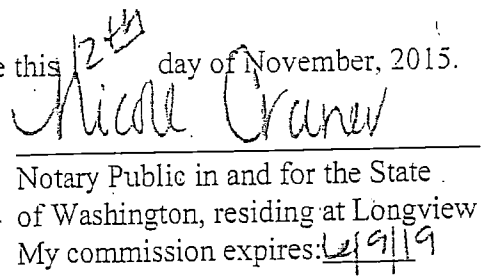 e this 12th day of November, 2015.
Nicole Craner
Notary Public in and for the State
of Washington, residing at Longview
My commission expires: 6/9/19